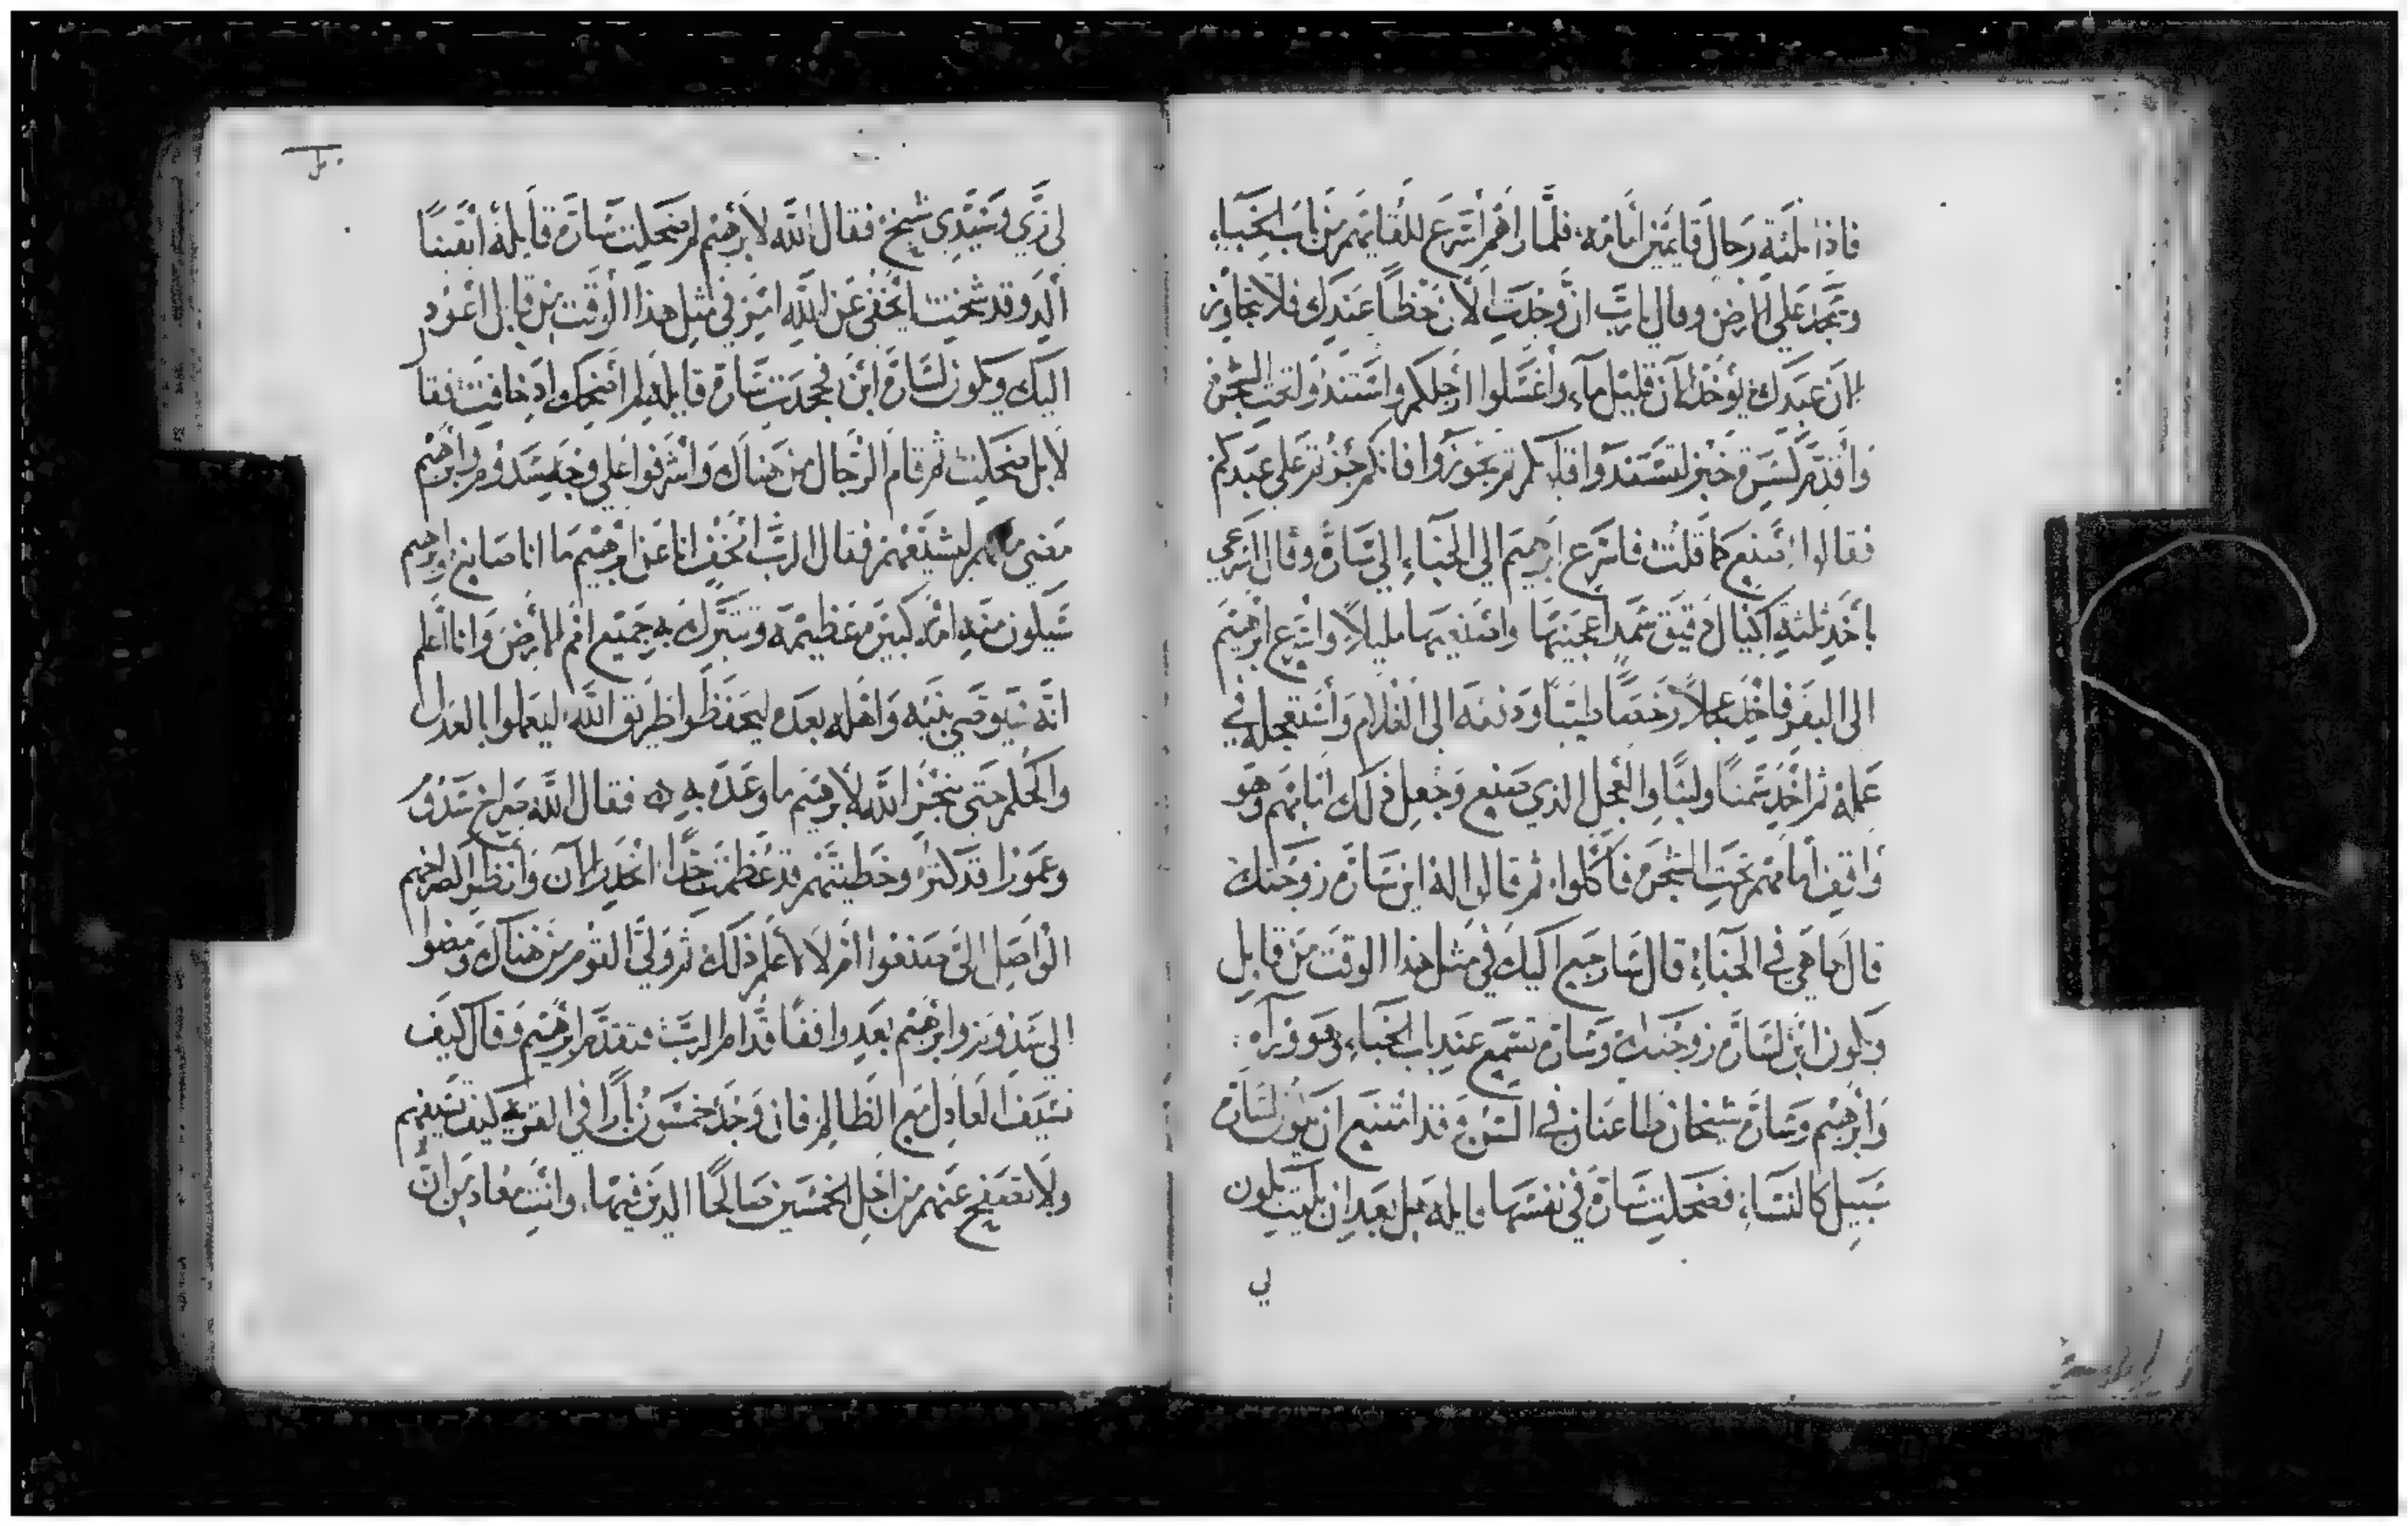 فاذا ثلثة رجال قايمين أمامه فلما راهم أسرع للقايهم من باب الخباء
وسجد على الارض وقال يارب ان وجدت الان حظا عندك فلا تجاوز
عن عبدك يؤخذ الان قليل ماء واغسلوا ارجلكم واستندوا تحت الشجرة
واقدم كسرة خبز لتسندوا قلوبكم ثم تجوزوا فانكم جزتم على عبدكم
فقالوا اصنع كما قلت فاسرع ابرهيم الى الخباء الي سارة وقال اسرعي
بأخذ ثلثة اكيال دقيق سمد اعجنيها واصنعيها مليلا واسرع ابرهيم
الى البقر فاخذ عجلا رخصا طيبا ودفعه الى الغلام واستعجله في
عمله ثم اخذ سمنا ولبنا والعجل الذي صنع وجعل ذلك امامهم وهو
واقف امامهم تحت الشجرة فأكلوا ثم قالوا له اين سارة زوجتك
قال ها هي في الخباء قال سارجع اليك في مثل هذا الوقت من قابل
ويكون ابن لسارة زوجتك وسارة تسمع عند باب الخباء وهو وراه
وابرهيم وسارة شيخان طاعنان في السن وقد امتنع ان يكون لسارة
سبيل كالنساء فضحكت سارة في نفسها قايلة هل بعد ان بليت يكون
لي
لي زي وسيدي شيخ فقال الله لابرهيم لم ضحكت سارة قايلة أيقينا
ألد وقد شخت ايخفى عن الله امر في مثل هذا الوقت من قابل اعود
اليك ويكون لسارة ابن فجحدت سارة قايلة لم أضحك اذ خافت فقال
لا بل ضحكت ثم قام الرجال من هناك واشرفوا على وجه سدوم وابرهيم
مضي معهم ليشيعهم فقال الرب اتخف انا عن ابرهيم ما انا صانع وابرهيم
سيكون منه امة كبيرة عظيمة وستبرك به جميع امم الارض وانا اعلم
انه سيوصي بنيه واهله بعده ليحفظوا طريق الله ليعملوا بالعدل
والحكم حتى ينجز الله لابرهيم ما وعده به فقال الله صراخ سدوم
وعمورا قد كثر وخطيئتهم قد عظمت جدا انحدر الان وأنظر الصراخهم
الواصل الى صنعوا ام لا لاعلم ذلك ثم ولى القوم من هناك ومضوا
الى سدوم وابرهيم بعد واقفا قدام الرب فتقدم ابرهيم وقال كيف
تسيف العادل مع الظالم فان وجد خمسون بارا في القرية كيف تسيفهم
ولا تصفح عنهم من اجل الخمسين صالحا الذين فيها وانت معاد من ان